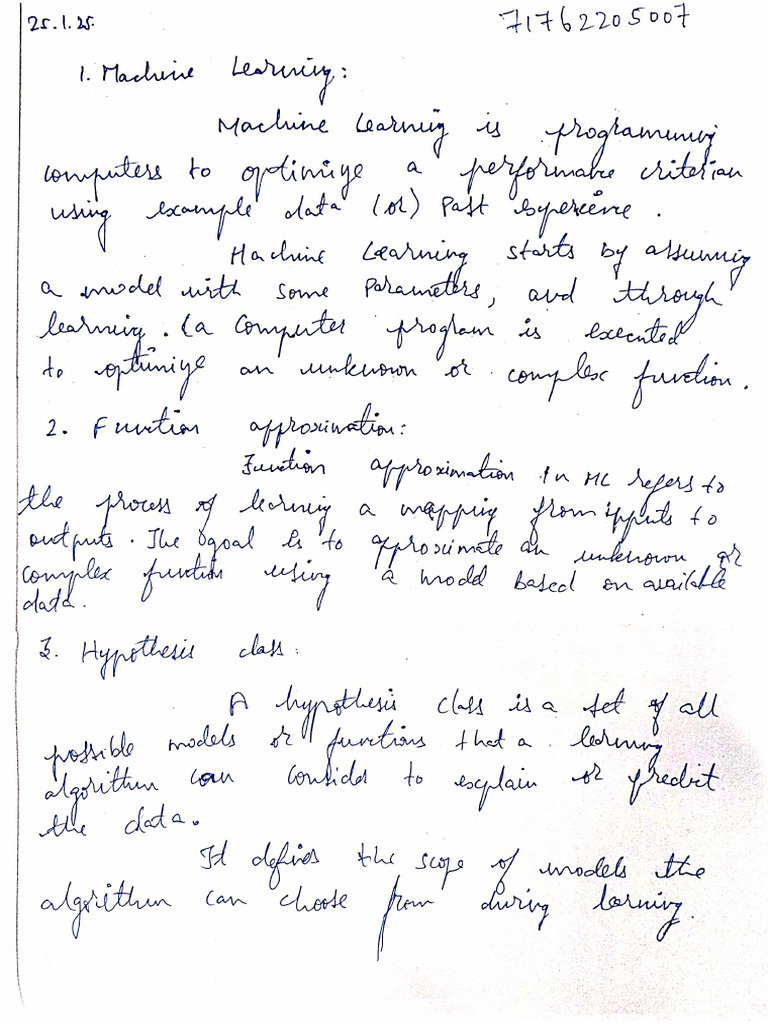 25.1.25.
71762205007
1. Machine Learning:
Machine Learning is programming
computers to optimize a performance criterian
using example data (or) Past experience.
Machine Learning starts by assuming
a model with some Parameters, and through
learning. (a Computer program is executed
to optimize an unknown or complex function.
2. Function approximation:
Function approximation in ML refers to
the process of learning a mapping from inputs to
outputs. The goal is to approximate an unknown or
complex function using a model based on available
data.
3. Hypothesis class:
A hypothesis class is a set of all
possible models or functions that a learning
algorithm can consider to explain or predict
the data.
It defines the scope of models the
algorithm can choose from during learning.